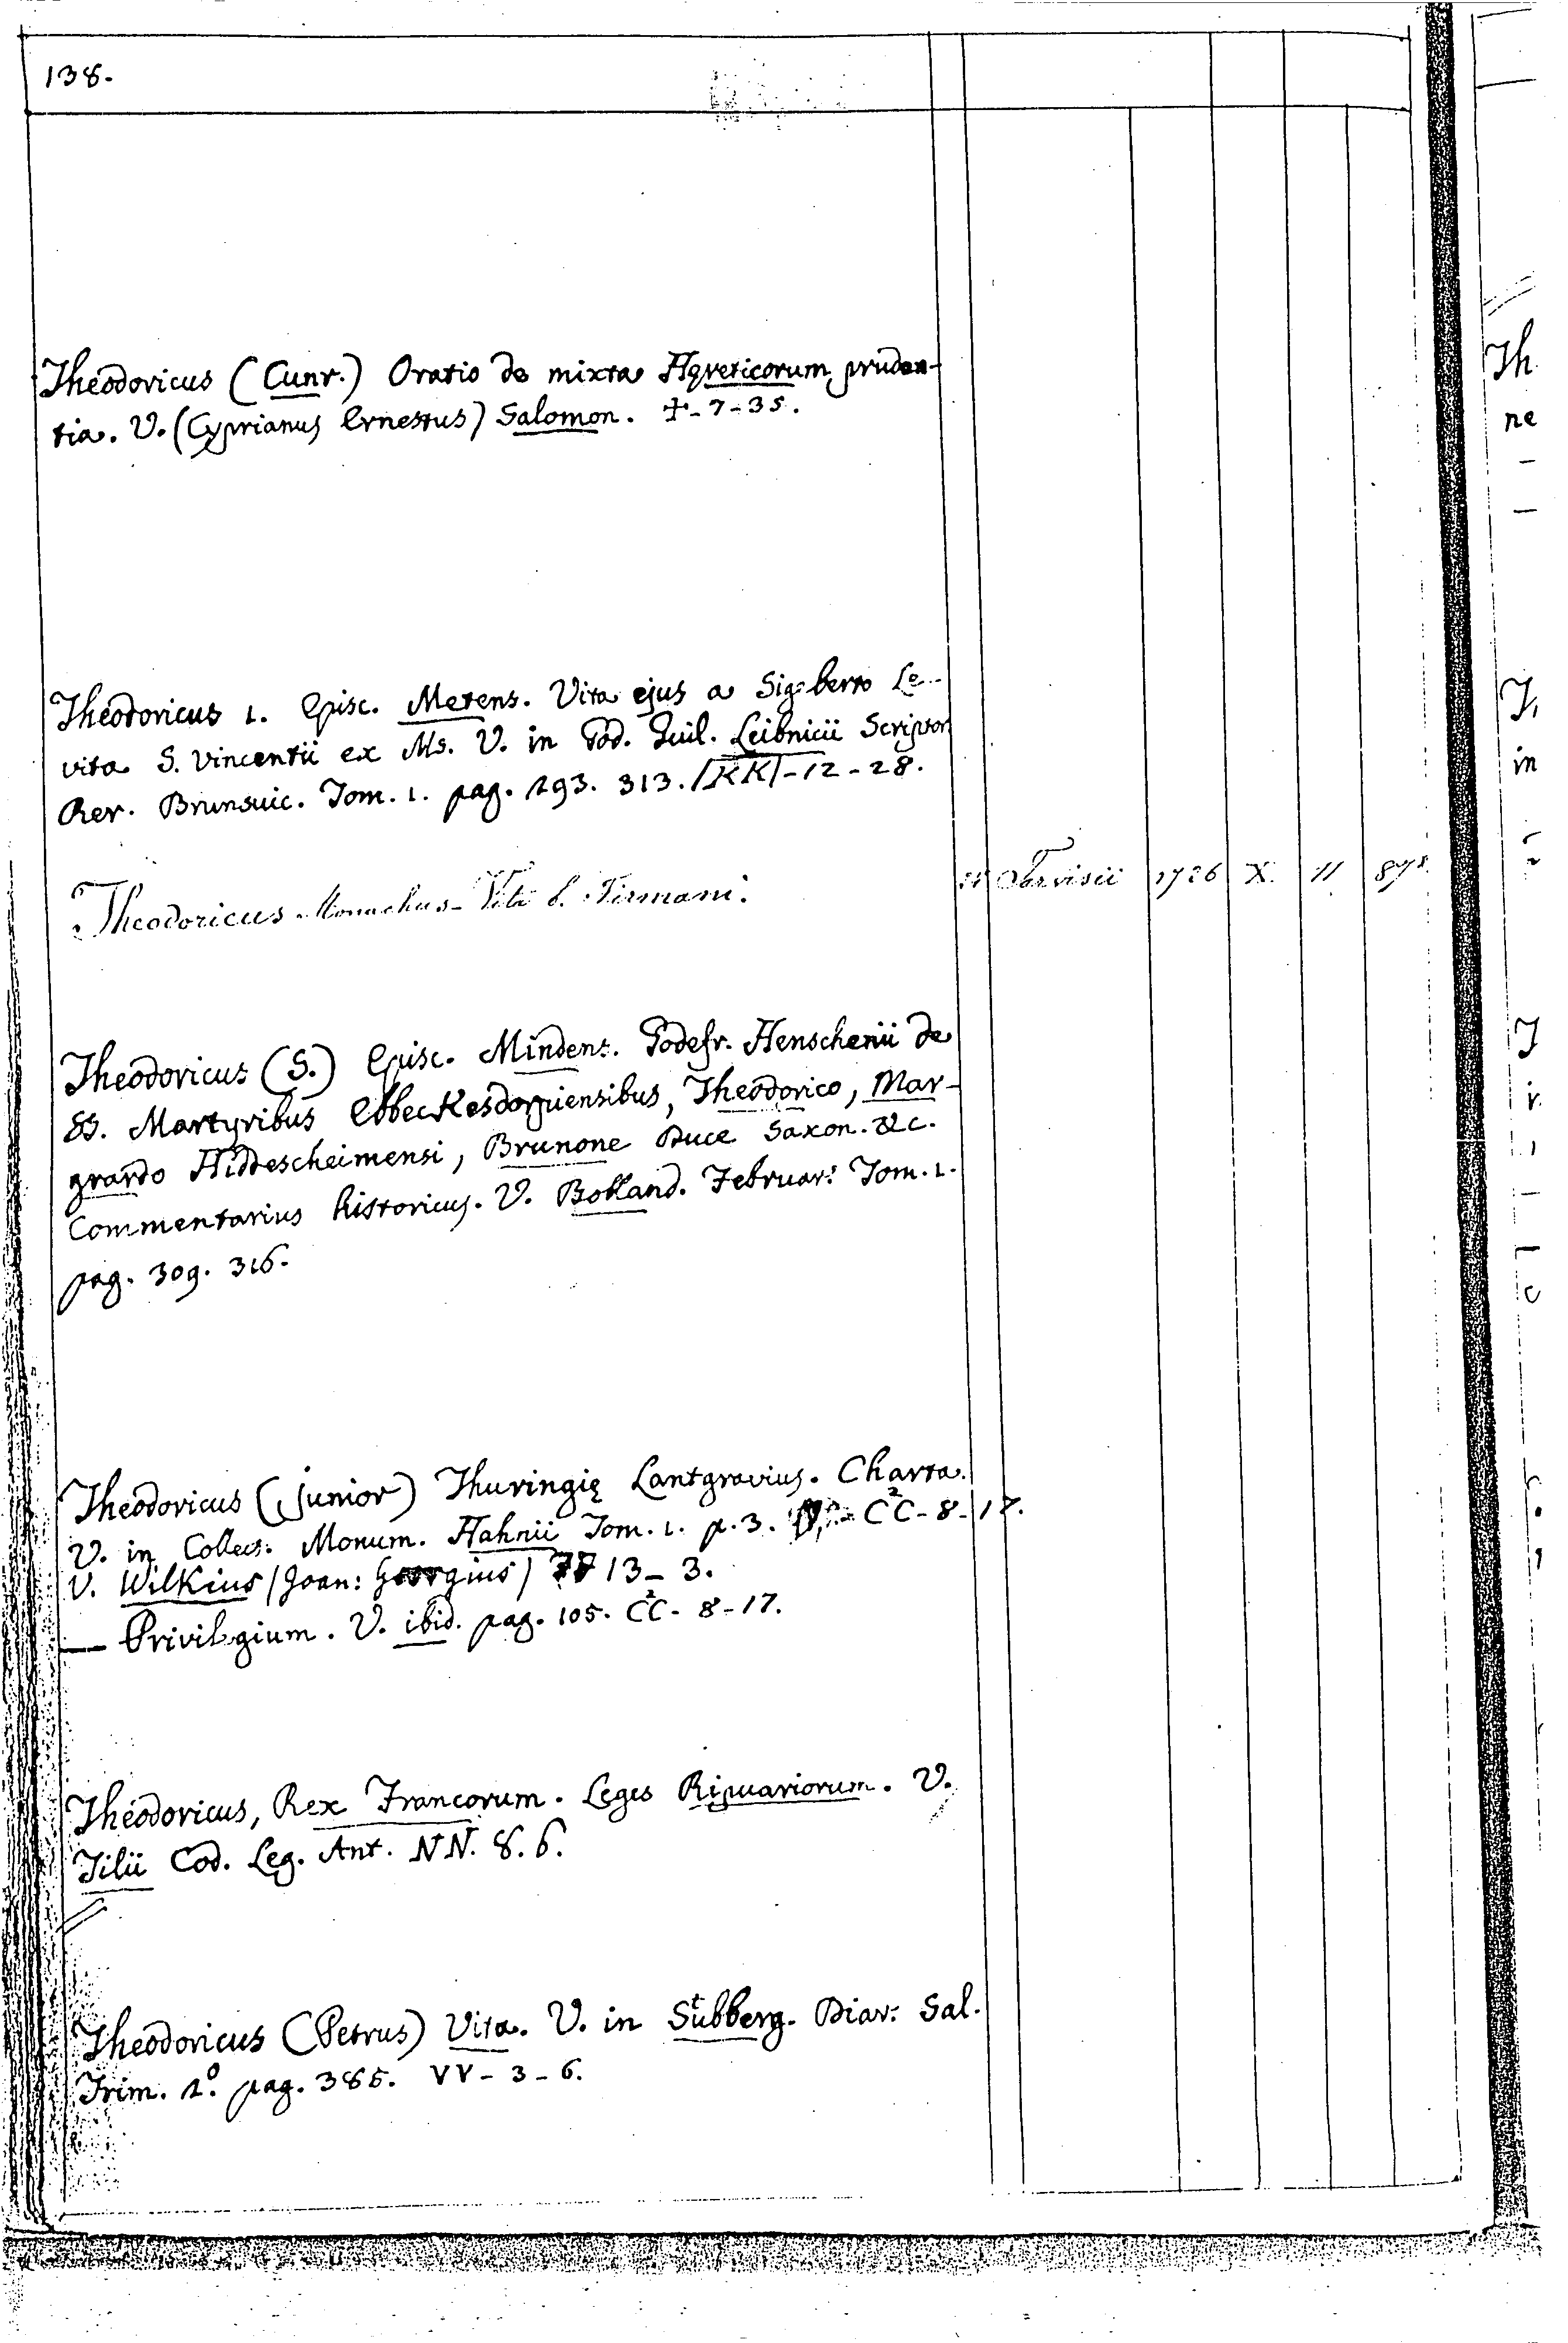 138.
Theodoricus (Cunr.) Oratio de mixta Hęreticorum pruden-
tia. V. (Cyprianus Ernestus) Salomon. +-7-35.
Theodoricus 1. Episc. Metens. Vita ejus a Sigeberto Le-
vita S. Vincentii ex Ms. V. in God. Guil. Leibnicii Scriptor.
Rer. Brunsuic. Tom. 1. pag. 293. 313. /KK/-12-28.
Theodoricus Monachus Vita b. Firmani. Tarvisii 1726 X. 11 87
Theodoricus (S.) Episc. Mindens. Godefr. Henschenii de
SS. Martyribus Ebbeckesdorpiensibus, Theodorico, Mar-
quardo Hiddescheimensi, Brunone Duce Saxon. &c.
Commentarius historicus. V. Bolland. Februar: Tom. 1.
pag. 309. 316.
Theodoricus (junior) Thuringię Lantgravius. Charta.
V. in Collect. Monum. Hahnii Tom. 1. p. 3. C²C-8-17.
V. Wilkius /Joan: Georgius/ 77 13-3.
— Privilegium. V. ibid. pag. 105. C²C-8-17.
Theodoricus, Rex Francorum. Leges Ripuariorum. V.
Tilii Cod. Leg. Ant. NN. 8. 6.
Theodoricus (Petrus) Vita. V. in Stubberg. Diar: Sal.
Trim. 2º. pag. 385. VV-3-6.
Th
ne
in